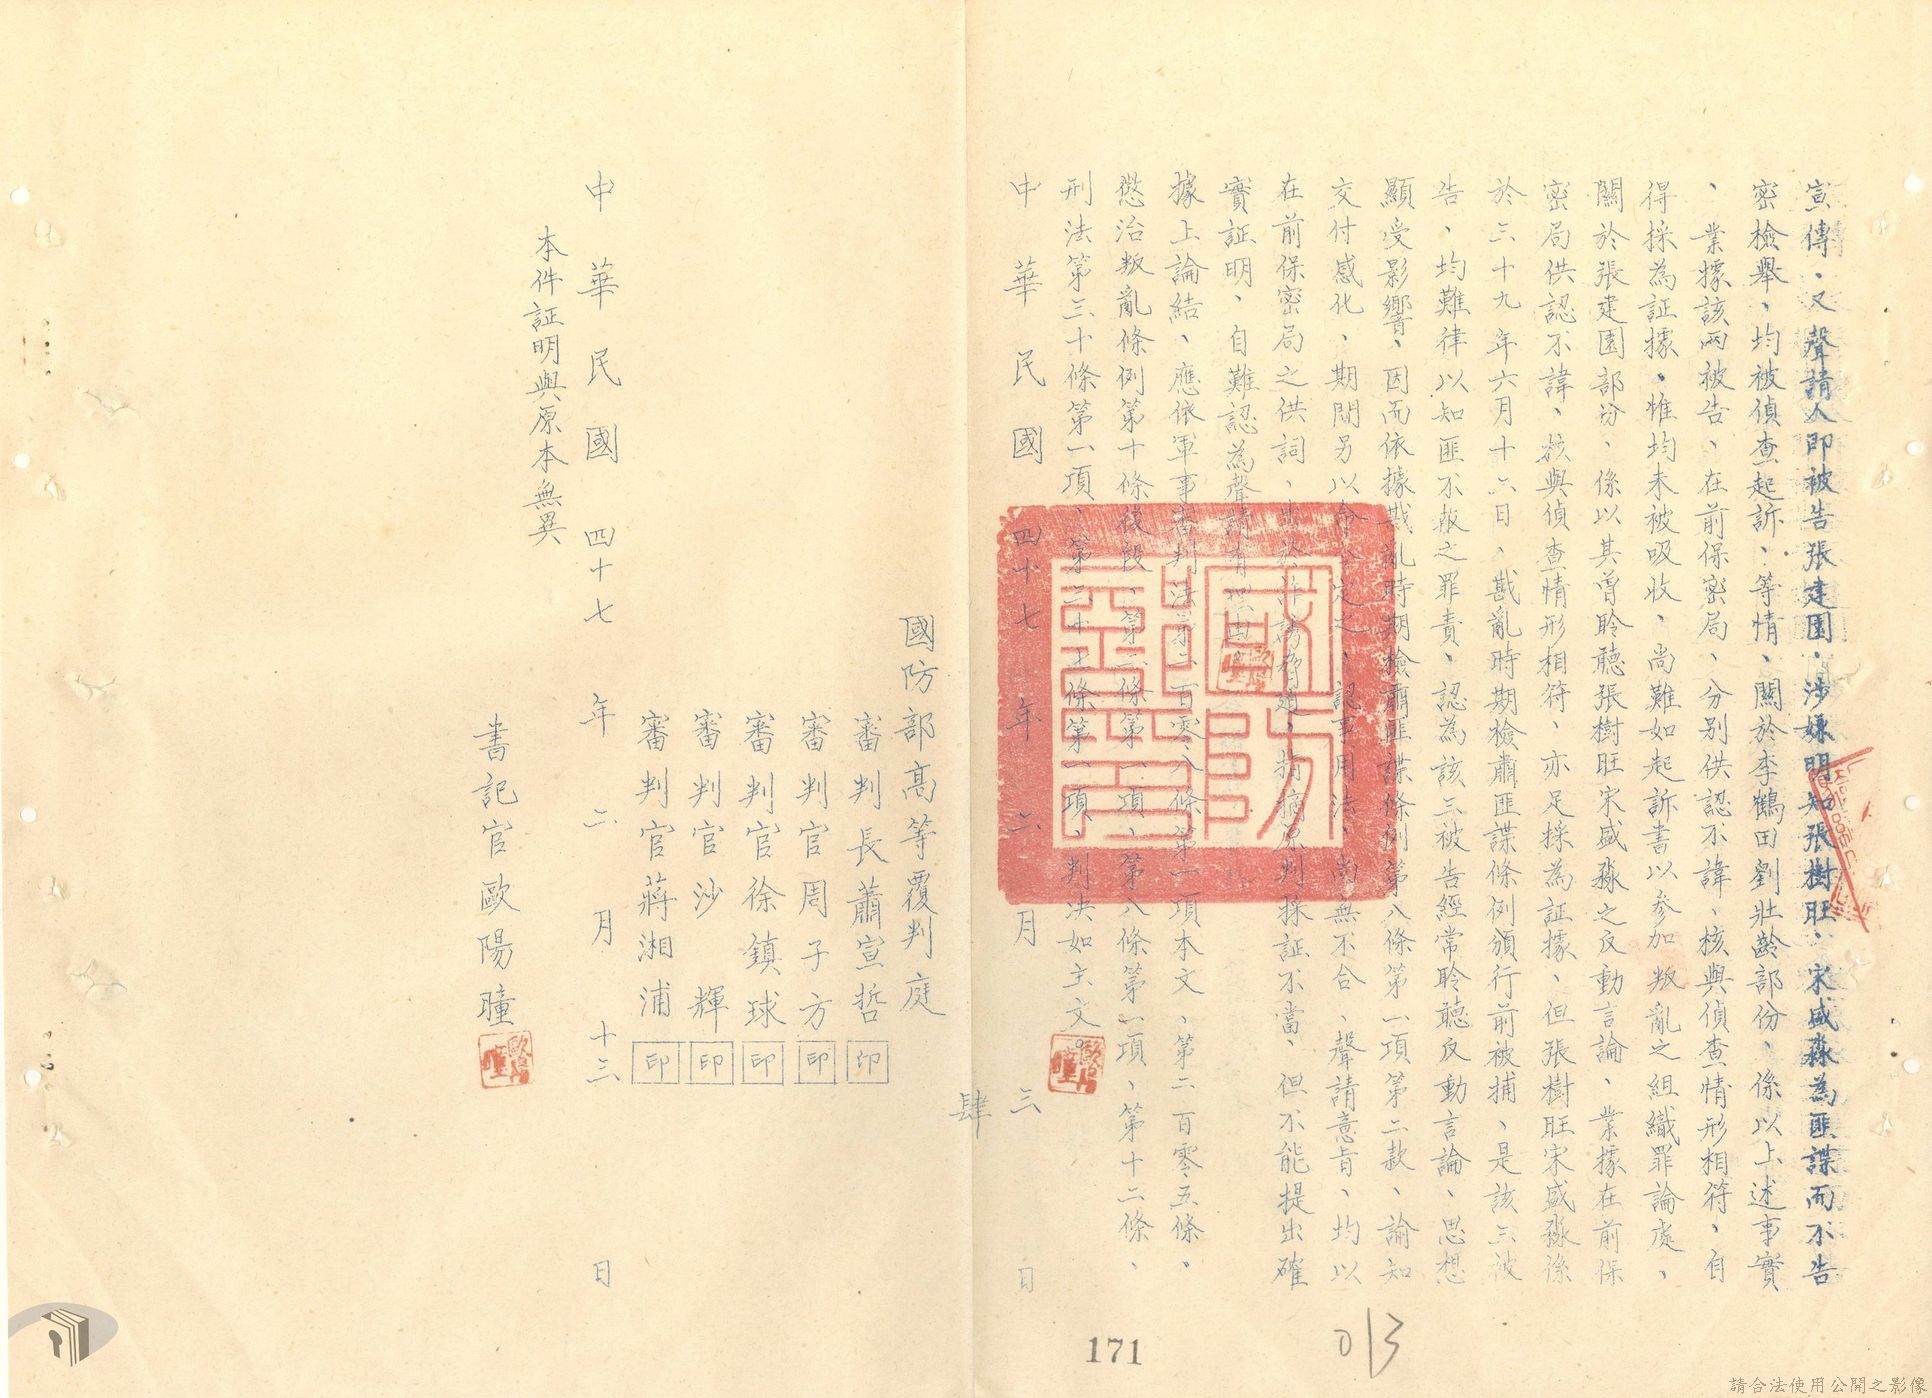 宣傳、又聲請人即被告張建園、涉嫌明知張樹旺、宋盛淼為匪諜而不告
密檢舉、均被偵查起訴、等情、關於李鶴田劉壯齡部份、係以上述事實
、業據該兩被告、在前保密局、分別供認不諱、核與偵查情形相符、自
得採為証據、惟均未被吸收、尚難如起訴書以參加叛亂之組織罪論處、
關於張建園部份、係以其曾聆聽張樹旺宋盛淼之反動言論、業據在前保
密局供認不諱、核與偵查情形相符、亦足採為証據、但張樹旺宋盛淼係
於三十九年六月十六日、戡亂時期檢肅匪諜條例頒行前被捕、是該三被
告、均難律以知匪不報之罪責、認為該三被告經常聆聽反動言論、思想
顯受影響、因而依據戡亂時期檢肅匪諜條例第八條第一項第二款、諭知
交付感化、期間另以命令定之、認事用法、尚無不合、聲請意旨、均以
在前保密局之供詞、出於、指摘原判採証不當、但不能提出確
實証明、自難認為聲請有理由
據上論結、應依軍事審判法第二百零八條第一項本文、第二百零五條、
懲治叛亂條例第十條後段、第二條第一項、第八條第一項、第十二條、
刑法第三十條第一項、第三十七條第一項、判決如主文。
中華民國四十七年二月三日
肆
國防部高等覆判庭
審判長蕭宣哲 印
審判官周子方 印
審判官徐鎮球 印
審判官沙輝 印
審判官蔣湘浦 印
中華民國四十七年二月十三日
本件証明與原本無異
書記官歐陽曈
國防部印
171
013
請合法使用公開之影像